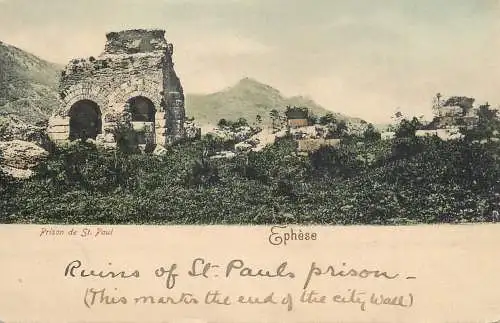 Prison de St. Paul
Ephèse
Ruins of St. Pauls prison -
(This marks the end of the city Wall)